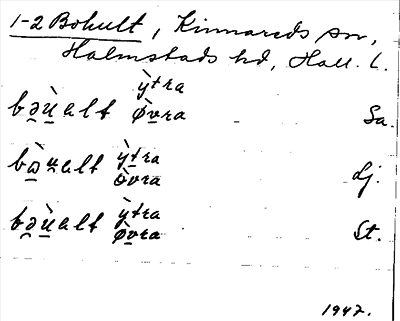 1-2 Bohult, Kinnareds sn,
Halmstads hd, Hall. l.
ỳtra
bəùalt ø̀vra Sa.
bɷ̀ualt ỳtra
ø̀vra Lj.
bəùalt ỳtra
ø̀vra St.
1947.